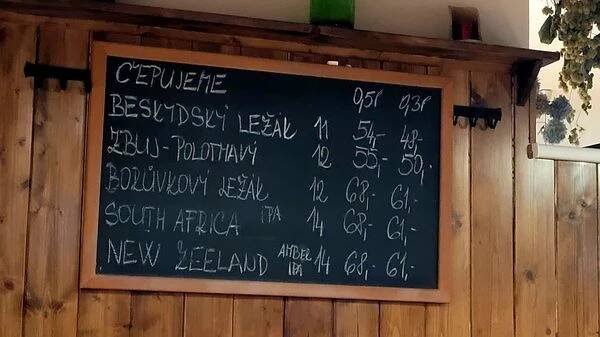 ČEPUJEME 0,5l 0,3l
BESKYDSKÝ LEŽÁK 11 54,- 48,-
ZBUJ-POLOTMAVÝ 12 55,- 50,-
BORŮVKOVÝ LEŽÁK 12 68,- 61,-
SOUTH AFRICA IPA 14 68,- 61,-
NEW ZEELAND AMBER IPA 14 68,- 61,-